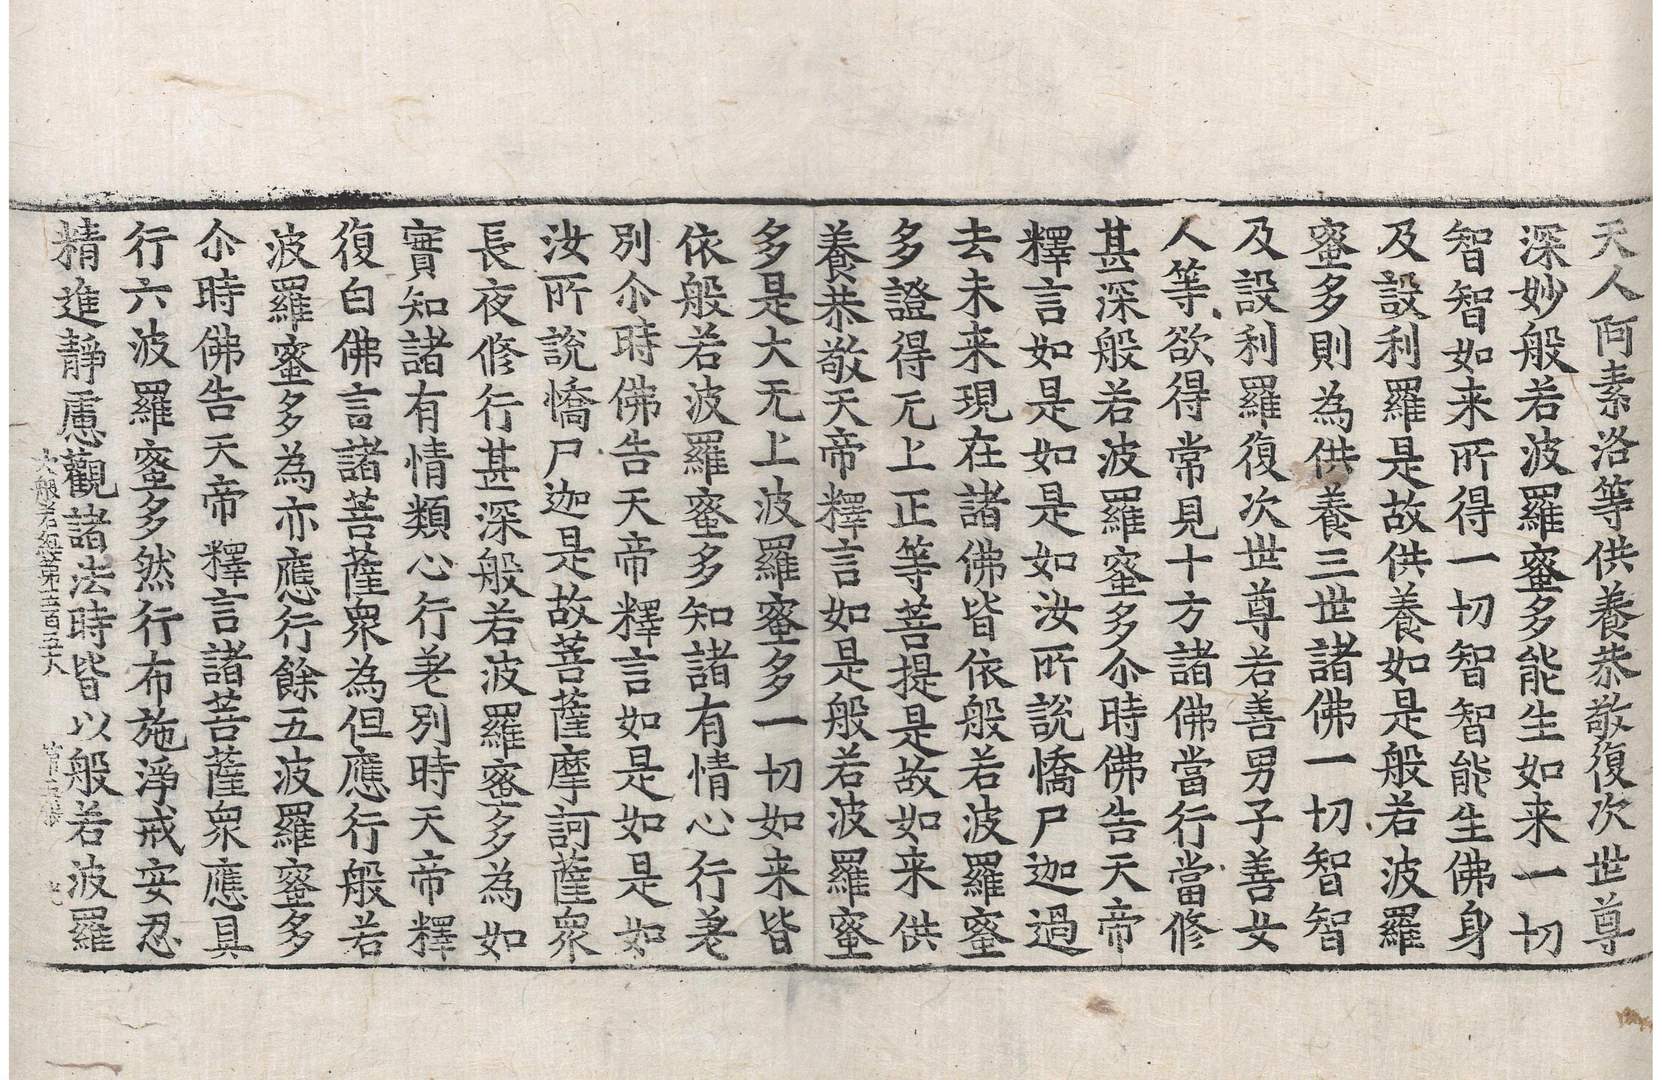 天人阿素洛等供養恭敬復次世尊
深妙般若波羅蜜多能生如来一切
智智如来所得一切智智能生佛身
及設利羅是故供養如是般若波羅
蜜多則為供養三世諸佛一切智智
及設利羅復次世尊若善男子善女
人等欲得常見十方諸佛當行當修
甚深般若波羅蜜多尒時佛告天帝
釋言如是如是如汝所說憍尸迦過
去未来現在諸佛皆依般若波羅蜜
多證得无上正等菩提是故如来供
養恭敬天帝釋言如是般若波羅蜜
多是大无上波羅蜜多一切如来皆
依般若波羅蜜多知諸有情心行差
別尒時佛告天帝釋言如是如是如
汝所說憍尸迦是故菩薩摩訶薩衆
長夜修行甚深般若波羅蜜多為如
實知諸有情類心行差別時天帝釋
復白佛言諸菩薩衆為但應行般若
波羅蜜多為亦應行餘五波羅蜜多
尒時佛告天帝釋言諸菩薩衆應具
行六波羅蜜多然行布施淨戒安忍
精進靜慮觀諸法時皆以般若波羅
大般若經第五百五十八